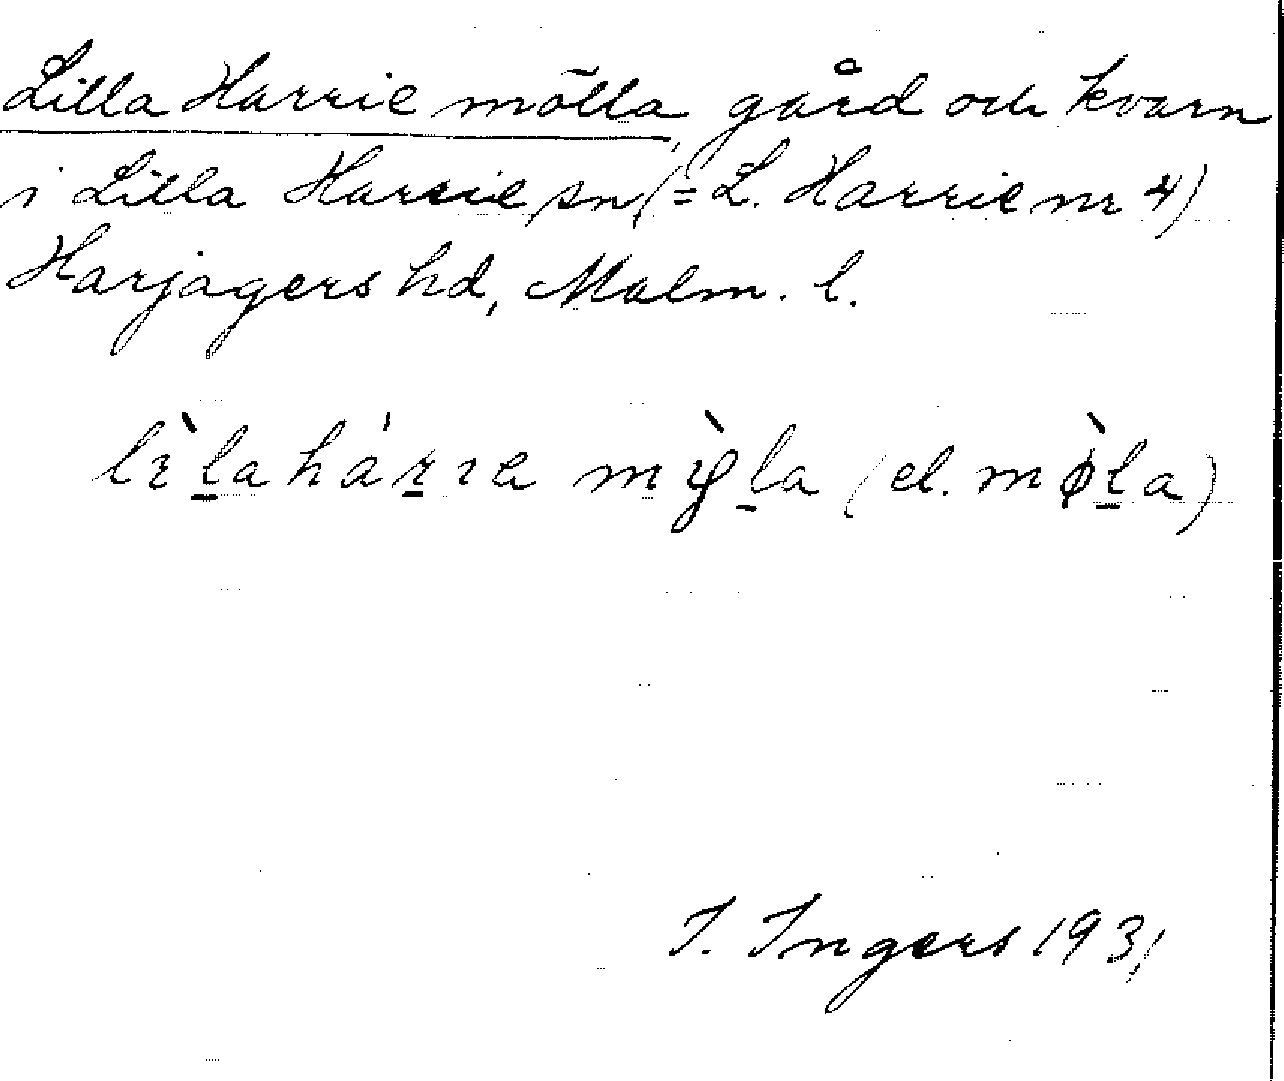 Lilla Harrie mölla, gård och kvarn
i Lilla Harrie sn (= L. Harrie nr 4)
Harjagers hd, Malm. l.
lɪ̀l̲a há r̲ɪe mỳl̲a (el. mø̀l̲a)
I. Ingers 1931